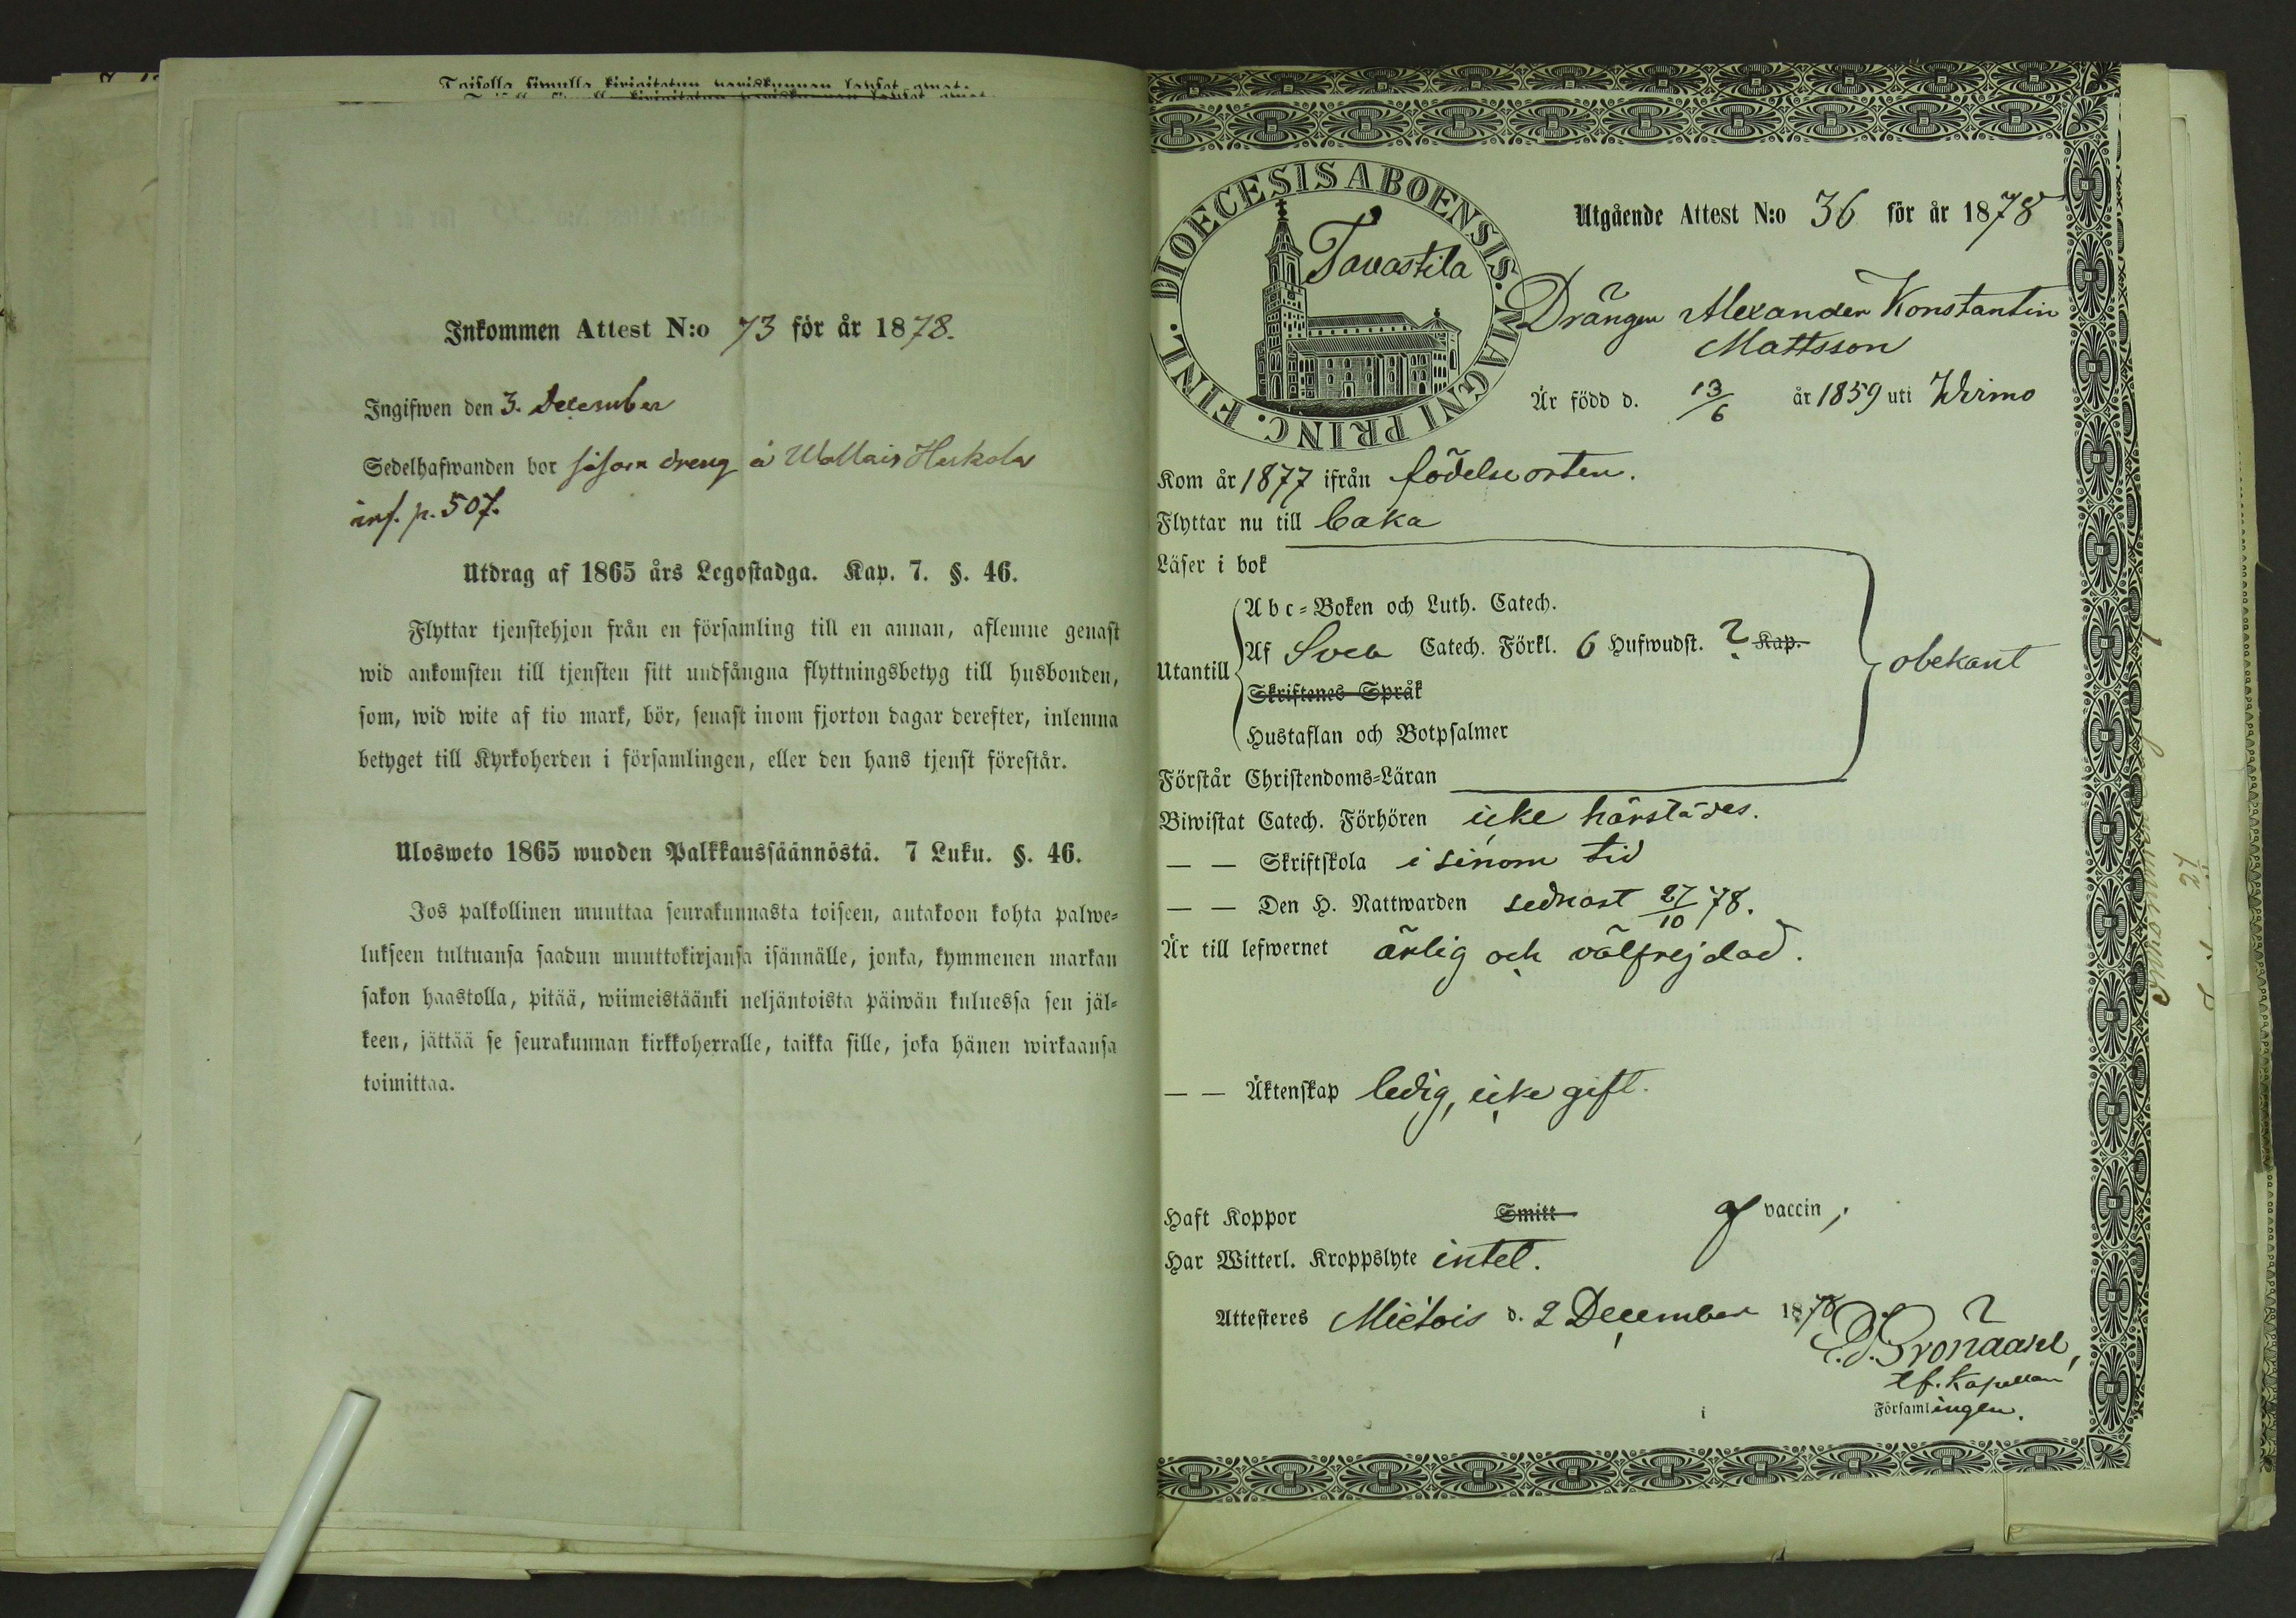 Toisella sivulla kirjoitetun pariskunnan lapset ovat.
Inkommen Attest N:o 73 för år 1878.
Ingifwen den 3. December
Sedelhafwanden bor såsom dreng å Wallais Huskola
inf. p. 507.
Utdrag af 1865 års Legostadga. Kap. 7. §. 46.
Flyttar tjenstehjon från en församling till en annan, aflemne genast
wid ankomsten till tjensten sitt undfångna flyttningsbetyg till husbonden,
som, wid wite af tio mark, bör, senast inom fjorton dagar derefter, inlemna
betyget till Kyrkoherden i församlingen, eller den hans tjenst förestår.
Ulosweto 1865 wuoden Palkkaussäännöstä. 7 Luku. §. 46.
Jos palkollinen muuttaa seurakunnasta toiseen, antakoon kohta palwe=
lukseen tultuansa saadun muuttokirjansa isännälle, jonka, kymmenen markan
sakon haastolla, pitää, wiimeistäänki neljäntoista päiwän kuluessa sen jäl=
keen, jättää se seurakunnan kirkkoherralle, taikka sille, joka hänen wirkaansa
toimittaa.
DIOECESIS ABOENSIS. MAGNI PRINC. FINL.
Tavastila
Utgående Attest N:o 36 för år 1878
Drängen Alexander Konstantin
Mattsson
Är född d. 13/6 år 1859 uti Wirmo
Kom år 1877 ifrån födelseorten.
Flyttar nu till
Läser i bok
Abc=Boken och Luth. Catech.
Utantill Af Sveb Catech. Förkl. 6 Hufwudst. ? Kap.
obekant
Skriftenes Språk
Hustaflan och Botpsalmer
Förstår Christendoms=Läran
Biwistat Catech. Förhören icke härstädes.
— — Skriftskola i sinom tid
— — Den H. Nattwarden sednast 27/10 78.
Är till lefwernet ärlig och välfrejdad.
— — Äktenskap ledig, icke gift.
Haft Koppor Smitt af vaccin,
Har Witterl. Kroppslyte intet.
Attesteres Mietois d. 2 December 1878
E. J. Grönvall,
tf. Kapellan
i Församlingen.